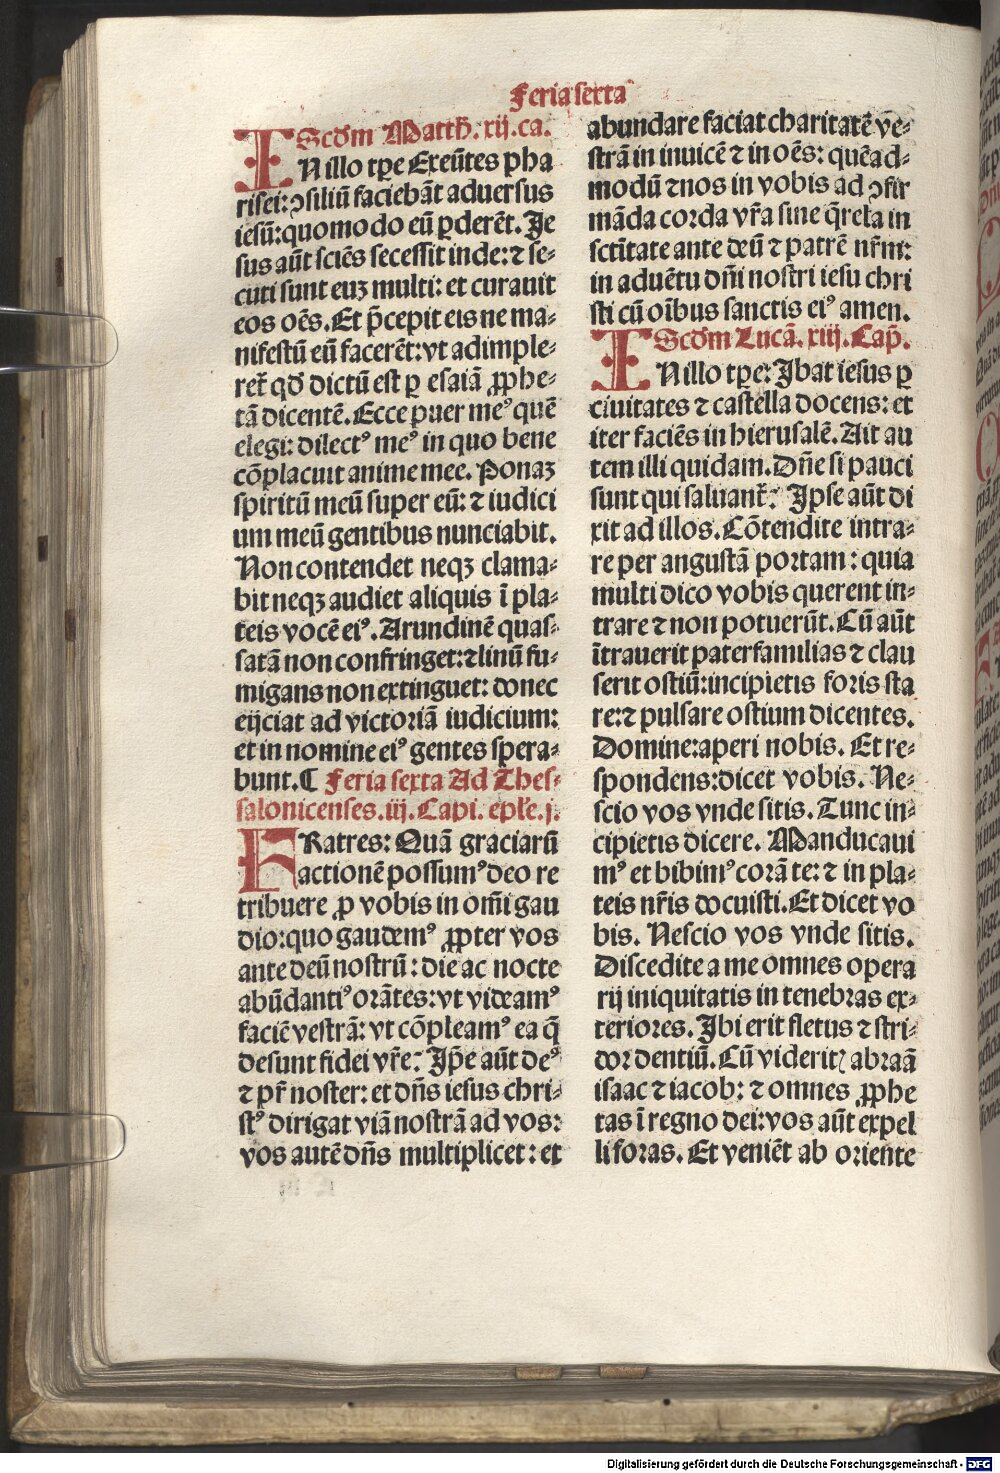 Feria sexta
Scd̄m Matth̄. xij. ca.
IN illo tꝑe Exeūtes pha
risei: ꝯsiliū faciebāt aduersus
iesū: quomodo eū ꝑderēt. Je
sus aūt sciēs secessit inde: ⁊ se⸗
cuti sunt euꝫ multi: et curauit
eos oēs. Et p̄cepit eis ne ma⸗
nifestū eū facerēt: vt adimple⸗
ret̄ qd̄ dictū est ꝑ esaiā ꝓphe⸗
tā dicentē. Ecce puer meꝰ quē
elegi: dilectꝰ meꝰ in quo bene
cōplacuit anime mee. Ponaꝫ
spiritū meū super eū: ⁊ iudici
um meū gentibus nunciabit.
Non contendet neqꝫ clama⸗
bit neqꝫ audiet aliquis ī pla⸗
teis vocē eiꝰ. Arundinē quas⸗
satā non confringet: ⁊ linū fu⸗
migans non extinguet: donec
eijciat ad victoriā iudicium:
et in nomine eiꝰ gentes spera⸗
bunt. ¶ Feria sexta Ad Thes⸗
salonicenses. iij. Capi. ep̄le. j.
FRatres: Quā graciarū
actionē possumꝰ deo re
tribuere ꝓ vobis in om̄i gau
dio: quo gaudemꝰ ꝓpter vos
ante deū nostrū: die ac nocte
abūdantiꝰ orātes: vt videamꝰ
faciē vestrā: vt cōpleamꝰ ea q̄
desunt fidei vr̄e: Ip̄e aūt deꝰ
⁊ pr̄ noster: et dn̄s iesus chri⸗
stꝰ dirigat viā nostrā ad vos:
vos autē dn̄s multiplicet: et
abundare faciat charitatē ve⸗
strā in inuicē ⁊ in oēs: quēad⸗
modū ⁊ nos in vobis ad ꝯfir
māda corda vr̄a sine q̄rela in
sctītate ante deū ⁊ patrē nr̄m:
in aduētu dn̄i nostri iesu chri
sti cū oībus sanctis eiꝰ amen.
Scd̄m Lucā. xiij. Cap̄.
IN illo tꝑe: Ibat iesus ꝑ
ciuitates ⁊ castella docens: et
iter faciēs in hierusalē. Ait au
tem illi quidam. Dn̄e si pauci
sunt qui saluant̄: Ipse aūt di
xit ad illos. Cōtendite intra⸗
re per angustā portam: quia
multi dico vobis querent in⸗
trare ⁊ non potuerūt. Cū aūt
ītrauerit paterfamilias ⁊ clau
serit ostiū: incipietis foris sta
re: ⁊ pulsare ostium dicentes.
Domine: aperi nobis. Et re⸗
spondens: dicet vobis. Ne⸗
scio vos vnde sitis. Tunc in⸗
cipietis dicere. Manducaui
mꝰ et bibimꝰ corā te: ⁊ in pla⸗
teis nr̄is docuisti. Et dicet vo
bis. Nescio vos vnde sitis.
Discedite a me omnes opera
rij iniquitatis in tenebras ex⸗
teriores. Ibi erit fletus ⁊ stri⸗
dor dentiū. Cū videritꝭ abraā
isaac ⁊ iacob: ⁊ omnes ꝓphe
tas ī regno dei: vos aūt expel
li foras. Et veniēt ab oriente
Digitalisierung gefördert durch die Deutsche Forschungsgemeinschaft - DFG